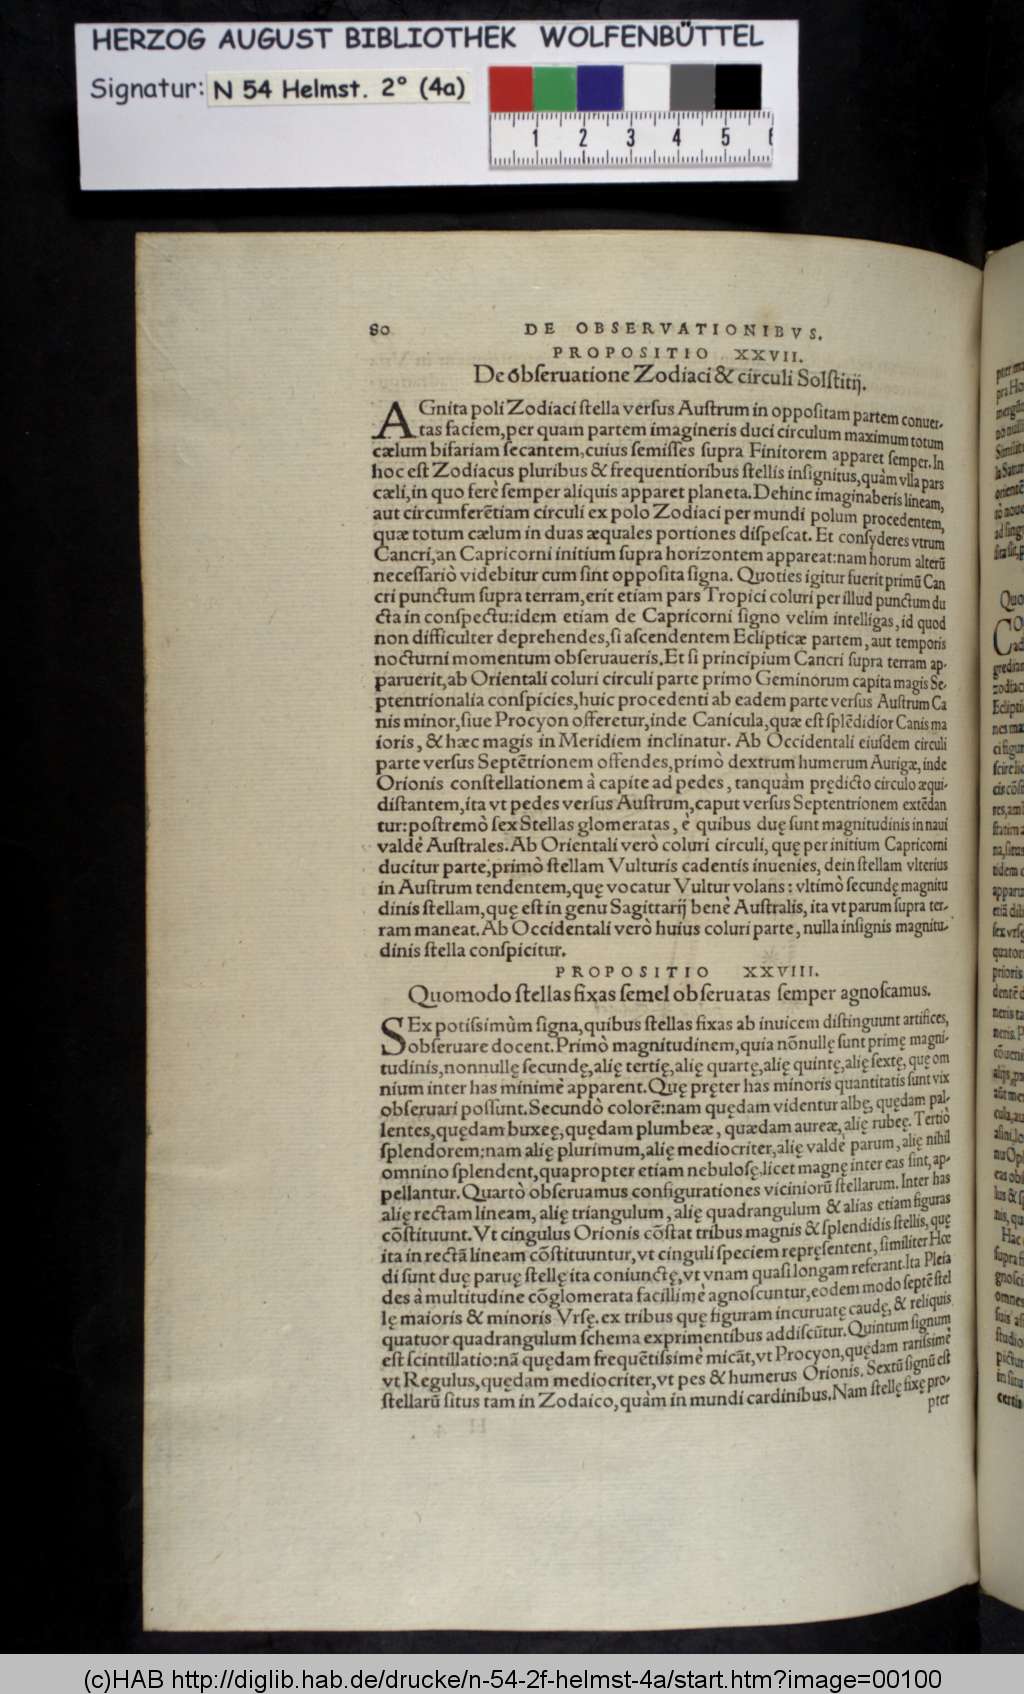 HERZOG AUGUST BIBLIOTHEK WOLFENBÜTTEL
Signatur: N 54 Helmst. 2° (4a)
1 2 3 4 5 6
80 DE OBSERVATIONIBVS.
PROPOSITIO XXVII.
De obſeruatione Zodiaci & circuli Solſtitij.
AGnita poli Zodiaci ſtella verſus Auſtrum in oppoſitam partem conuer-
tas faciem, per quam partem imagineris duci circulum maximum totum
cælum bifariam ſecantem, cuius ſemiſſes ſupra Finitorem apparet ſemper. In
hoc eſt Zodiacus pluribus & frequentioribus ſtellis inſignitus, quàm vlla pars
cæli, in quo ferè ſemper aliquis apparet planeta. Dehinc imaginaberis lineam,
aut circumferẽtiam circuli ex polo Zodiaci per mundi polum procedentem,
quæ totum cælum in duas æquales portiones diſpeſcat. Et conſyderes vtrum
Cancri, an Capricorni initium ſupra horizontem appareat: nam horum alterũ
neceſſariò videbitur cum ſint oppoſita ſigna. Quoties igitur fuerit primũ Can
cri punctum ſupra terram, erit etiam pars Tropici coluri per illud punctum du
cta in conſpectu: idem etiam de Capricorni ſigno velim intelligas, id quod
non difficulter deprehendes, ſi aſcendentem Eclipticæ partem, aut temporis
nocturni momentum obſeruaueris. Et ſi principium Cancri ſupra terram ap-
paruerit, ab Orientali coluri circuli parte primo Geminorum capita magis Se-
ptentrionalia conſpicies, huic procedenti ab eadem parte verſus Auſtrum Ca
nis minor, ſiue Procyon offeretur, inde Canicula, quæ eſt ſplẽdidior Canis ma
ioris, & hæc magis in Meridiem inclinatur. Ab Occidentali eiuſdem circuli
parte verſus Septẽtrionem offendes, primò dextrum humerum Aurigæ, inde
Orionis conſtellationem à capite ad pedes, tanquàm prędicto circulo æqui-
diſtantem, ita vt pedes verſus Auſtrum, caput verſus Septentrionem extẽdan
tur: poſtremò ſex Stellas glomeratas, è quibus duę ſunt magnitudinis in naui
valdè Auſtrales. Ab Orientali verò coluri circuli, quę per initium Capricorni
ducitur parte, primò ſtellam Vulturis cadentis inuenies, dein ſtellam vlterius
in Auſtrum tendentem, quę vocatur Vultur volans: vltimò ſecundę magnitu
dinis ſtellam, quę eſt in genu Sagittarij benè Auſtralis, ita vt parum ſupra ter-
ram maneat. Ab Occidentali verò huius coluri parte, nulla inſignis magnitu-
dinis ſtella conſpicitur.
PROPOSITIO XXVIII.
Quomodo ſtellas fixas ſemel obſeruatas ſemper agnoſcamus.
SEx potiſſimùm ſigna, quibus ſtellas fixas ab inuicem diſtinguunt artifices,
obſeruare docent. Primò magnitudinem, quia nõnullę ſunt primę magni-
tudinis, nonnullę ſecundę, alię tertię, alię quartę, alię quintę, alię ſextę, quę om
nium inter has minimè apparent. Quę pręter has minoris quantitatis ſunt vix
obſeruari poſſunt. Secundò colorẽ: nam quędam videntur albę, quędam pal-
lentes, quędam buxeę, quędam plumbeæ, quædam aureæ, alię rubeę. Tertiò
ſplendorem: nam alię plurimum, alię mediocriter, alię valdè parum, alię nihil
omnino ſplendent, quapropter etiam nebuloſę, licet magnę inter eas ſint, ap-
pellantur. Quartò obſeruamus configurationes viciniorũ ſtellarum. Inter has
alię rectam lineam, alię triangulum, alię quadrangulum & alias etiam figuras
cõſtituunt. Vt cingulus Orionis cõſtat tribus magnis & ſplendidis ſtellis, quę
ita in rectã lineam cõſtituuntur, vt cinguli ſpeciem repręſentent, ſimiliter Hœ
di ſunt duę paruę ſtellę ita coniunctę, vt vnam quaſi longam referant. Ita Pleia
des à multitudine cõglomerata facillimè agnoſcuntur, eodem modo ſeptẽ ſtel
lę maioris & minoris Vrſę. ex tribus quę figuram incuruatę caudę, & reliquis
quatuor quadrangulum ſchema exprimentibus addiſcũtur. Quintum ſignum
eſt ſcintillatio: nã quędam frequẽtiſſimè micãt, vt Procyon, quędam rariſſimè
vt Regulus, quędam mediocriter, vt pes & humerus Orionis. Sextũ ſignũ eſt
ſtellarũ ſitus tam in Zodaico, quàm in mundi cardinibus. Nam ſtellę fixę pro-
pter
(c)HAB http://diglib.hab.de/drucke/n-54-2f-helmst-4a/start.htm?image=00100